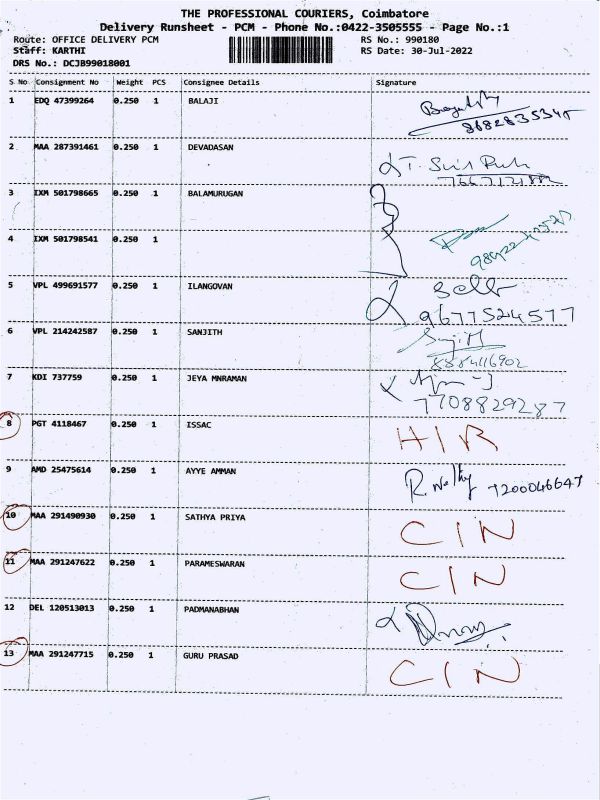 THE PROFESSIONAL COURIERS, Coimbatore
Delivery Runsheet - PCM - Phone No.:0422-3505555 - Page No.:1
Route: OFFICE DELIVERY PCM RS No.: 990180
Staff: KARTHI RS Date: 30-Jul-2022
DRS No.: DCJB99018001
S No Consignment No Weight PCS Consignee Details Signature
1 EDQ 47399264 0.250 1 BALAJI
8682835345
2 MAA 287391461 0.250 1 DEVADASAN
3 IXM 501798665 0.250 1 BALAMURUGAN
4 IXM 501798541 0.250 1
5 VPL 499691577 0.250 1 ILANGOVAN
9677524577
6 VPL 214242587 0.250 1 SANJITH
7 KDI 737759 0.250 1 JEYA MNRAMAN
7708829287
8 PGT 4118467 0.250 1 ISSAC HIR
9 AMD 25475614 0.250 1 AYYE AMMAN 7200046647
10 MAA 291490930 0.250 1 SATHYA PRIYA CIN
11 MAA 291247622 0.250 1 PARAMESWARAN CIN
12 DEL 120513013 0.250 1 PADMANABHAN
13 MAA 291247715 0.250 1 GURU PRASAD CIN